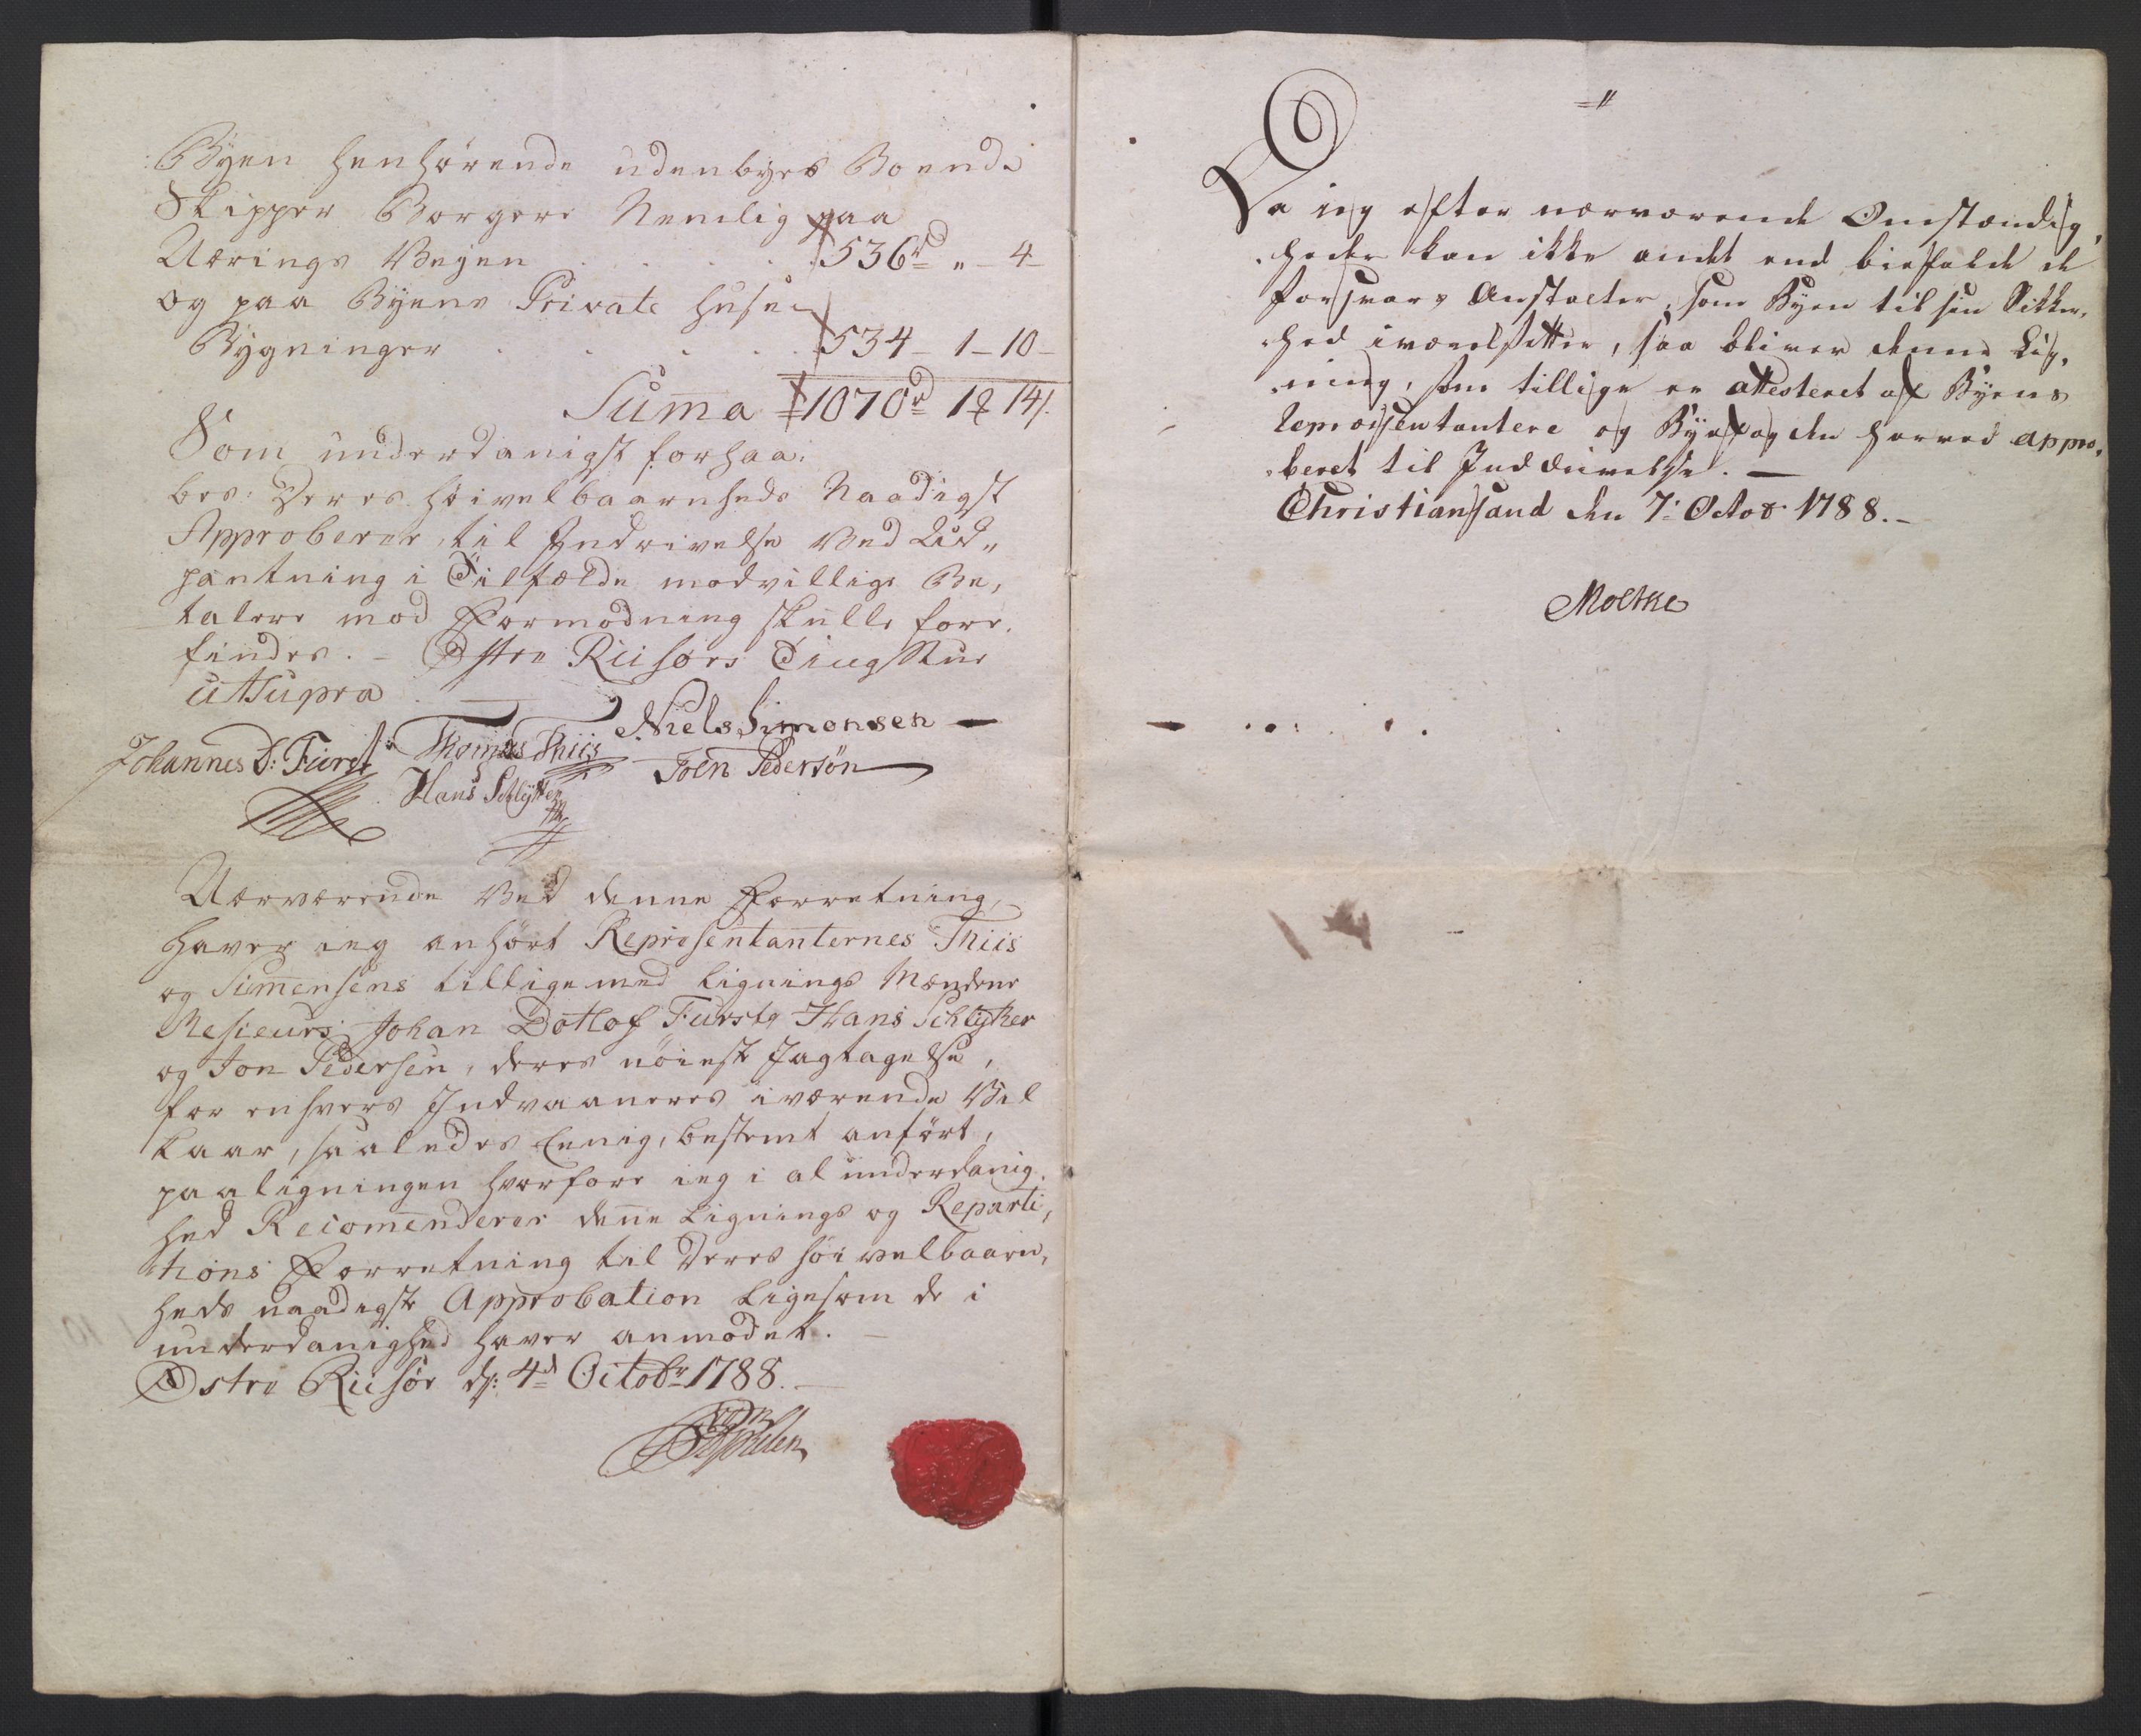 Byen henhørende udenbyes Boende
Skipper Borgere Nemlig paa
Nærings Veyen . . . . 536rd „ - 4 -
og paa Byens Private huse
Bygninger . . . . . 534 - 1 - 10 -
Suma 1070rd 1 14s.
Som underdanigst forhaa,
bes: Deres høivelbaarnheds Naadigst
Approberer til Inddrivelse ved Ud„
pantning i Tilfælde modvillige Be,
talere mod Formodning skulle fore,
findes. - Østre Riisørs Tingstue
ut Supra
Johannes D: Furst Thomas Thiis Niels Simonsen
Hans Schlytter Joen Pedersøn
Nærværende Ved denne Forretning,
haver ieg anhørt Repræsentanternes Thiis
og Simensens tilligemed Ligningsmændene
Mesieurs Johan Dotlof Furst, Hans Schlytter
og Jon Pedersen, deres nøieste Jagtagelse,
for enhvers Indvaaneres iværende Vil
kaar, saaledes Eenig, bestemt anført,
paaligningen hvorfore ieg i al underdanig,
hed Recomenderer denne Lignings og Reparti,
tions Forretning til Deres høivelbaarn,
heds naadigste Approbation Ligesom de i
underdanighed haver anmodet. -
Østre Riisør d: 4d Octobr 1788. -
Da ieg efter nærværende Omstændig,
heder kan ikke andet end biefalde de
Forsvars Anstalter, som Byen til sin Sikker,
hed iværcksetter, saa bliver denne Lig,
ning, som tillige er attesteret af Byens
Repræsentantere og Byefogden herved appro,
beret til Inddrivelse. -
Christiansand den 7: Octobr 1788. -
Moltke